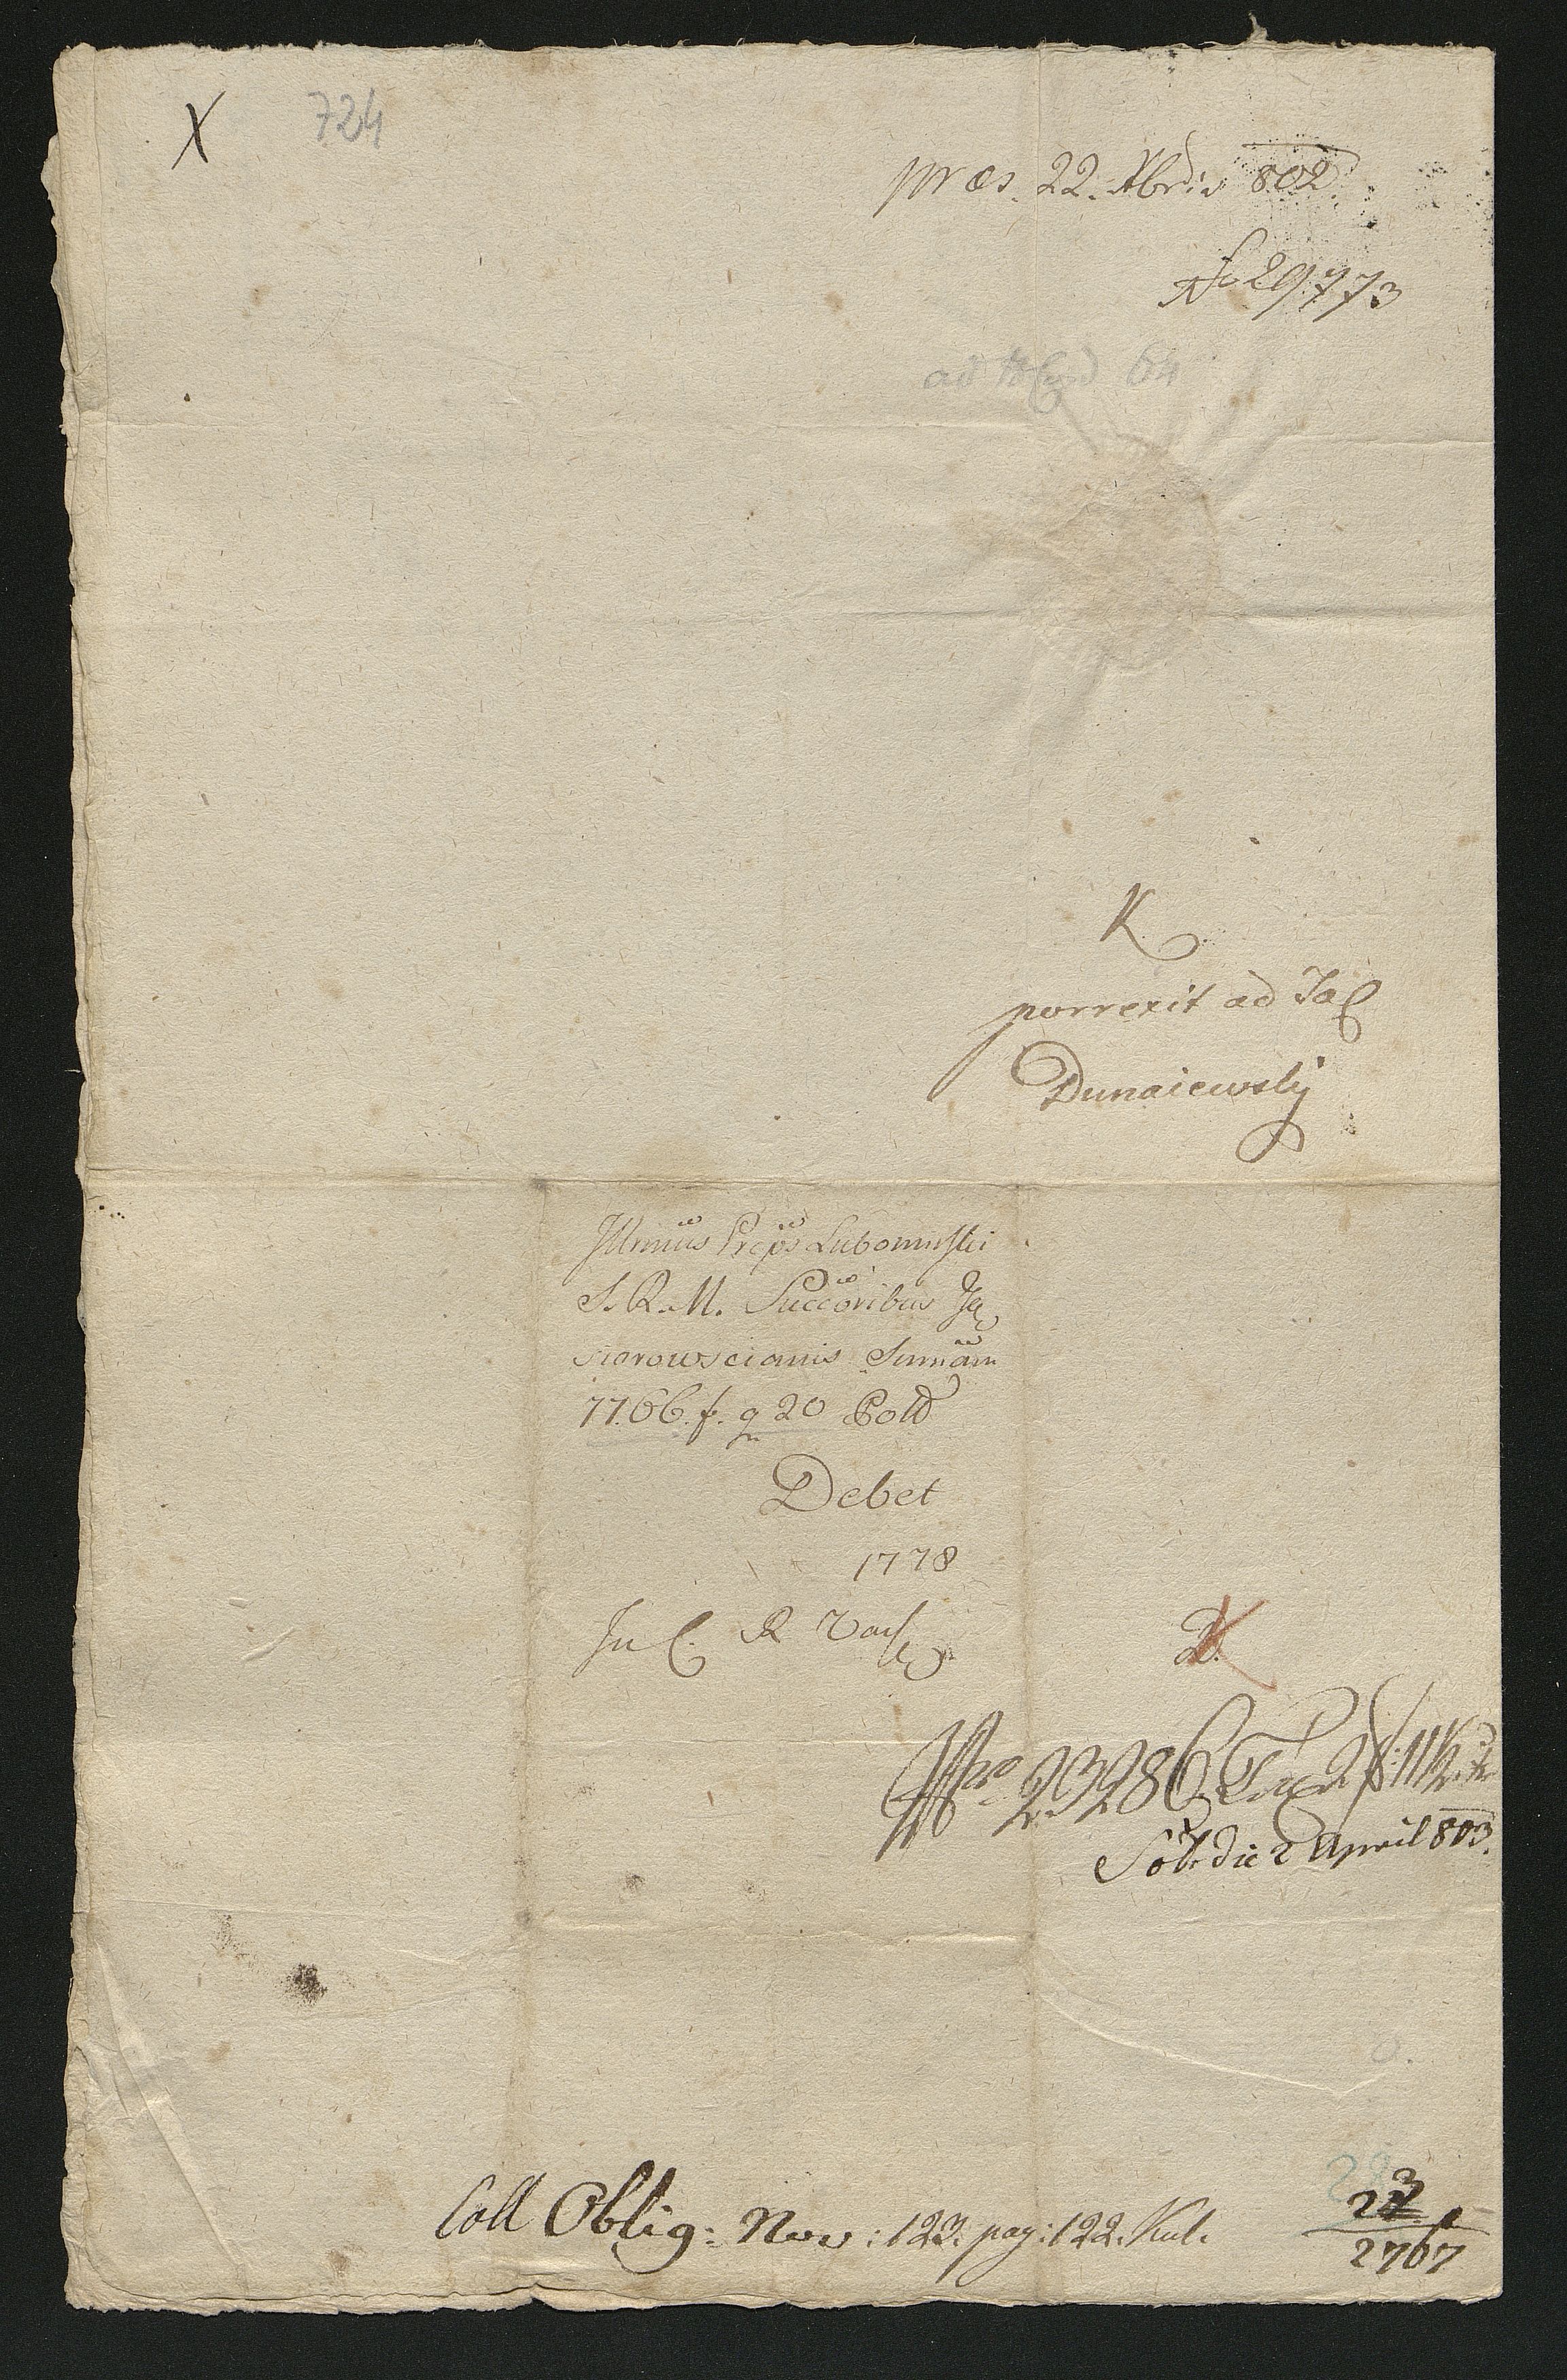 X 724
præs. 22. Xbris 802
No 29773
ad 64
K
porrexit ad Taff
Dunaiewsky
Illmus Preps Lubomirski
S. R. M. Succoribus Ja
siorowscianis Summam
7766. f. g 20 Pol
Debet
1778
In C. R
D.
Npro 23286 Tax 2 f: 11 1/2 xr
Sol: die 2 April 803.
Coll Oblig: Nov: 123. pag: 122. Kul.
2767